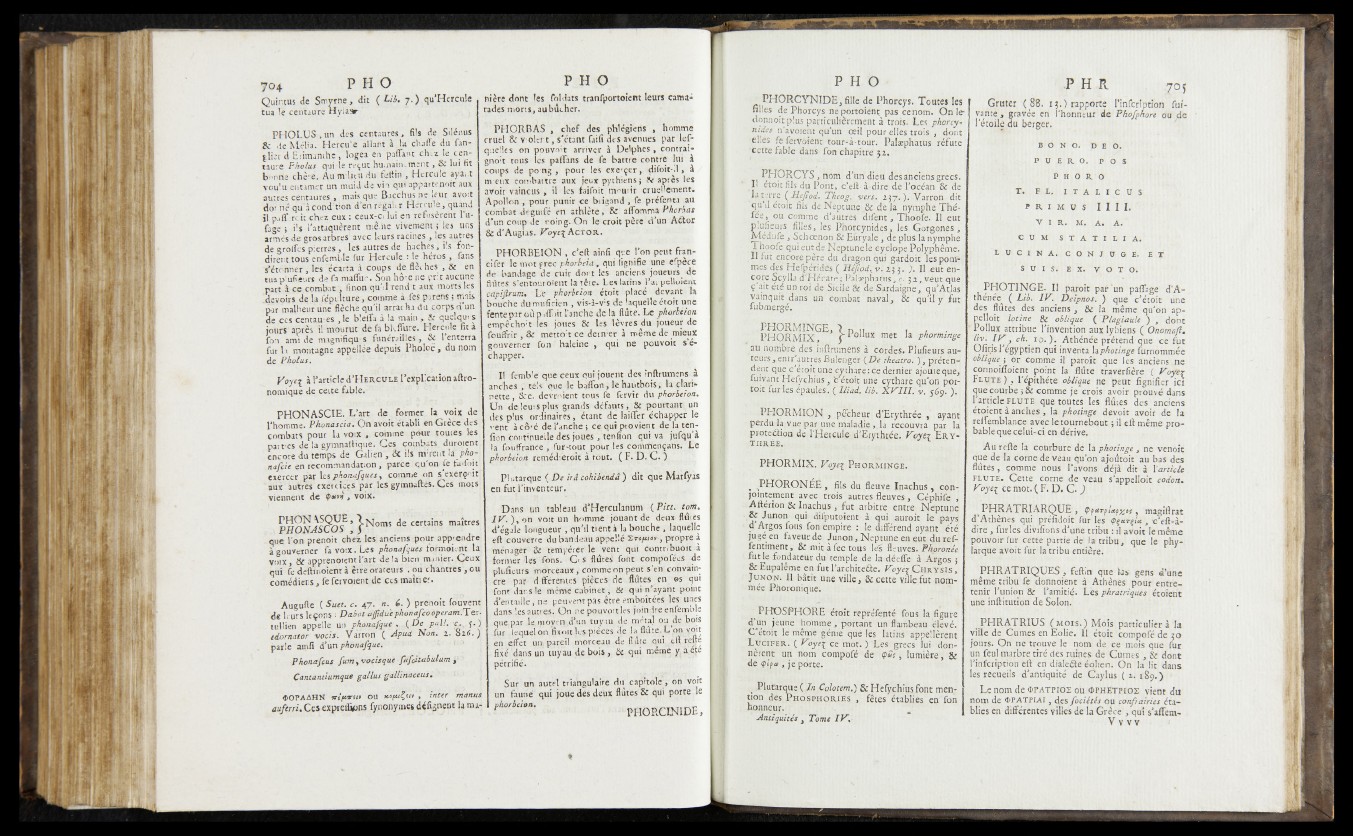 704 PHO
Quintus de Smyrne, dit (Lib. 7.) qu'Hercule
tua le centaure Hylas
PHOLUS, un des centaures, fils de Silénus
& de Mélia. Hercule allant à la chasse du san-
glier d'Erimanthe, logea en passant chez le cen-
taure Pholus qui le reçut humainement, & lui fit
bonne chère. Au milieu du festin, Hercule ayant
voulu entamer un muid de vin qui appartenoit aux
autres centaures, mais que Bacchus ne leur avoit
donné qu'à condition d'en régaler Hercule, quand
il passeroit chez eux : ceux-ci lui en refusèrent l'u-
sage ; ils l'attaquèrent même vivement ; les uns
armés de gros arbres avec leurs racines, les autres
de grosses pierres, les autres de haches, ils fon-
dirent tous ensemble sur Hercule : le héros, sans
s'étonner, les écarta à coups de flèches, & en
tua plusieurs de sa massue. Son hôte ne prit aucune
part à ce combat, sinon qu'il rendit aux morts les
devoirs de la sépulture, comme à ses parens ; mais
par malheur une flèche qu'il arracha du corps d'un
de ces centaures, le blessa à la main, & quelques
jours après il mourut de sa blessure. Hercule fit à
son ami de magnifiques funérailles, & l'enterra
sur la montagne appellée depuis Pholoé, du nom
de Pholus.
Voyez à l'article d'HERCULE l'explication astro-
nomique de cette fable.
PHONASCIE. L'art de former la voix de
l'homme. Phonascia. On avoit établi en Grèce des
combats pour la voix, comme pour toutes les
parties de la gymnastique. Ces combats duroient
encore du temps de Galien, & ils mirent la pho-
nascie en recommandation, parce qu'on se faisoit
exercer par les phonasques, comme on s'exerçoit
aux autres exercices par les gymnastes. Ces mots
viennent de φωνή, voix.
PHONASQUE, } Noms de certains maîtres
PHONASCOS, }
que l'on prenoit chez les anciens pour apprendre
à gouverner sa voix. Les phonasques formoient la
voix, & apprenoient l'art de la bien manier. Ceux
qui se destinoient à être orateurs, ou chantres, ou
comédiers, se servoient de ces maîtres.
Auguste (Suet. c. 47. n. 6.) prenoit souvent
de leurs leçons : Dabat assiduè phonasco operam. Ter-
tullien appelle un phonasque. (De pall. c. 5.)
edornator vocis. Varron (Apud Non. 2. 826.)
parle ainsi d'un phonasque.
Phonascus sum, vocisque suscitabulum,
Cantantiumque gallus gallinaceus.
ΦΟΡΑΔΗΝ πέμπειν ou κομίζειν, inter manus
auferri. Ces expressions synonymes désignent la ma-
PHO
nière dont les soldats transportoient leurs cama-
rades morts, au bûcher.
PHORBAS, chef des phlégiens, homme
cruel & violent, s'étant saisi des avenues par les-
quelles on pouvoit arriver à Delphes, contrai-
gnoit tous les passans de se battre contre lui à
coups de poing, pour les exercer, disoit-il, à
mieux combattre aux jeux pythiens ; & après les
avoir vaincus, il les faisoit mourir cruellement.
Apollon, pour punir ce brigand, se présenta au
combat déguisé en athlète, & assomma Phorbas
d'un coup de poing. On le croit père d'un Actor
& d'Augias. Voyez ACTOR.
PHORBEION, c'est ainsi que l'on peut fran-
ciser le mot grec phorbeia, qui signifie une espèce
de bandage de cuir dont les anciens joueurs de
flûtes s'entouroient la tête. Les latins l'appelloient
capistrum. Le phorbeion étoit placé devant la
bouche du musicien, vis-à-vis de laquelle étoit une
fente par où passoit l'anche de la flûte. Le phorbeion
empêchoit les joues & les lèvres du joueur de
souffrir, & mettoit ce dernier à même de mieux
gouverner son haleine, qui ne pouvoit s'é-
chapper.
Il semble que ceux qui jouent des instrumens à
anches, tels que le basson, le hautbois, la clari-
nette, &c. devroient tous se servir du phorbeion.
Un de leurs plus grands défauts, & pourtant un
des plus ordinaires, étant de laisser échapper le
vent à côté de l'anche ; ce qui provient de la ten-
sion continuelle des joues, tension qui va jusqu'à
la souffrance, sur-tout pour les commençans. Le
phorbeion remédieroit à tout. (F. D. C.)
Plutarque (De irâ cohibendâ) dit que Marsyas
en fut l'inventeur.
Dans un tableau d'Herculanum (Pitt. tom.
IV.), on voit un homme jouant de deux flûtes
d'égale longueur, qu'il tient à la bouche, laquelle
est couverte du bandeau appellé Στόμιον, propre à
ménager & tempérer le vent qui contribuoit à
former les sons. Ces flûtes sont composées de
plusieurs morceaux, comme on peut s'en convain-
cre par différentes pièces de flûtes en os qui
sont dans le même cabinet, & qui n'ayant point
d'entaille, ne peuvent pas être emboîtées les unes
dans les autres. On ne pouvoit les joindre ensemble
que par le moyen d'un tuyau de métal ou de bois
sur lequel on fixoit les pièces de la flûte. L'on voit
en effet un pareil morceau de flûte qui est resté
fixé dans un tuyau de bois, & qui même y a été
pétrifié.
Sur un autel triangulaire du capitole, on voit
un faune qui joue des deux flûtes & qui porte le
phorbeion.
PHORCINIDE,
PHO
PHORCYNIDE, fille de Phorcys. Toutes les
filles de Phorcys ne portoient pas ce nom. On le
donnoit plus particulièrement à trois. Les phorcy-
nides n'avoient qu'un œil pour elles trois, dont
elles se servoient tour-à-tour. Palæphatus réfute
cette fable dans son chapitre 32.
PHORCYS, nom d'un dieu des anciens grecs.
Il étoit fils du Pont, c'est à dire de l'océan & de
la terre (Hesiod. Theog. vers. 237.). Varron dit
qu'il étoit fils de Neptune & de la nymphe Thé-
sée, ou comme d'autres disent, Thoose. Il eut
plusieurs filles, les Phorcynides, les Gorgones,
Méduse, Schœnon & Euryale, de plus la nymphe
Thoose qui eut de Neptune le cyclope Polyphême.
Il fut encore père du dragon qui gardoit les pom-
mes des Hespérides (Hésiod. v. 233.). Il eut en-
core Scylla d'Hécate ; Palæphatus, c. 32, veut que
ç'ait été un roi de Sicile & de Sardaigne, qu'Atlas
vainquit dans un combat naval, & qu'il y fut
submergé.
PHORMINGE, } Pollux met la phorminge
PHORMIX, }
au nombre des instrumens à cordes. Plusieurs au-
teurs, entr'autres Bulenger (De theatro.), préten-
dent que c'étoit une cythare : ce dernier ajoute que,
suivant Hesychius, c'étoit une cythare qu'on por-
toit sur les épaules. (Iliad. lib. XVIII. v. 569.).
PHORMION, pêcheur d'Erythrée, ayant
perdu la vue par une maladie, la recouvra par la
protection de l'Hercule d'Erythrée. Voyez ERY-
THRÉE.
PHORMIX. Voyez PHORMINGE.
PHORONÉE, fils du fleuve Inachus, con-
jointement avec trois autres fleuves, Céphise,
Astérion & Inachus, fut arbitre entre Neptune
& Junon qui disputoient à qui auroit le pays
d'Argos sous son empire : le différend ayant été
jugé en faveur de Junon, Neptune en eut du res-
sentiment, & mit à sec tous les fleuves. Phoronée
fut le fondateur du temple de la déesse à Argos ;
& Eupalème en fut l'architecte. Voyez CHRYSIS,
JUNON. Il bâtit une ville, & cette ville fut nom-
mée Phoronique.
PHOSPHORE étoit représenté sous la figure
d'un jeune homme, portant un flambeau élevé.
C'étoit le même génie que les latins appellèrent
LUCIFER. (Voyez ce mot.) Les grecs lui don-
nèrent un nom composé de φῶς, lumière, &
de φέρω, je porte.
Plutarque (In Colotem.) & Hesychius font men-
tion des PHOSPHORIES, fêtes établies en son
honneur.
Antiquités, Tome IV.
PHR 705
Gruter (88. 13.) rapporte l'inscription sui-
vante, gravée en l'honneur de Phosphore ou de
l'étoile du berger.
BONO. DEO.
PUERO. POS
PHORO
T. FL. ITALICUS
PRIMUS IIII.
VIR. M. A. A.
CUM STATILIA.
LUCINA. CONJUGE. ET
SUIS. EX. VOTO.
PHOTINGE. Il paroît par un passage d'A-
thénée (Lib. IV. Deipnos.) que c'étoit une
des flûtes des anciens, & la même qu'on ap-
pelloit lotine & oblique (Plagiaule), dont
Pollux attribue l'invention aux lybiens (Onomast.
liv. IV, ch. 10.). Athénée prétend que ce fut
Osiris l'égyptien qui inventa la photinge surnommée
oblique ; or comme il paroît que les anciens ne
connoissoient point la flûte traversière (Voyez
FLUTE), l'épithète oblique ne peut signifier ici
que courbe, & comme je crois avoir prouvé dans
l'article FLUTE que toutes les flûtes des anciens
étoient à anches, la photinge devoit avoir de la
ressemblance avec le tournebout ; il est même pro-
bable que celui-ci en dérive.
Au reste la courbure de la photinge, ne venoit
que de la corne de veau qu'on ajoûtoit au bas des
flûtes, comme nous l'avons déjà dit à l'article
FLUTE. Cette corne de veau s'appelloit codon.
Voyez ce mot. (F. D. C.)
PHRATRIARQUE, φρατρίαρχος, magistrat
d'Athènes qui présidoit sur les φρατρία, c'est-à-
dire, sur les divisions d'une tribu : il avoit le même
pouvoir sur cette partie de la tribu, que le phy-
larque avoit sur la tribu entière.
PHRATRIQUES, festin que les gens d'une
même tribu se donnoient à Athènes pour entre-
tenir l'union & l'amitié. Les phratriques étoient
une institution de Solon.
PHRATRIUS (mois.) Mois particulier à la
ville de Cumes en Eolie. Il étoit composé de 30
jours. On ne trouve le nom de ce mois que sur
un seul marbre tiré des ruines de Cumes, & dont
l'inscription est en dialecte éolien. On la lit dans
les recueils d'antiquité de Caylus (2. 189.)
Le nom de ΦΡΑΤΡΙΟΣ ou ΦΡΗΤΡΙΟΣ vient du
nom de ΦΡΑΤΡΙΑΙ, des sociétés ou confrairies éta-
blies en différentes villes de la Grèce, qui s'assem-
Vvvv